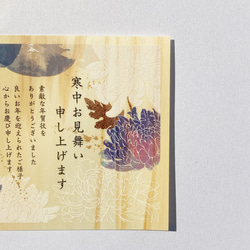 寒中お見舞い
申し上げます
素敵な年賀状を
ありがとうございました
良いお年を迎えられたご様子
心からお慶び申し上げます